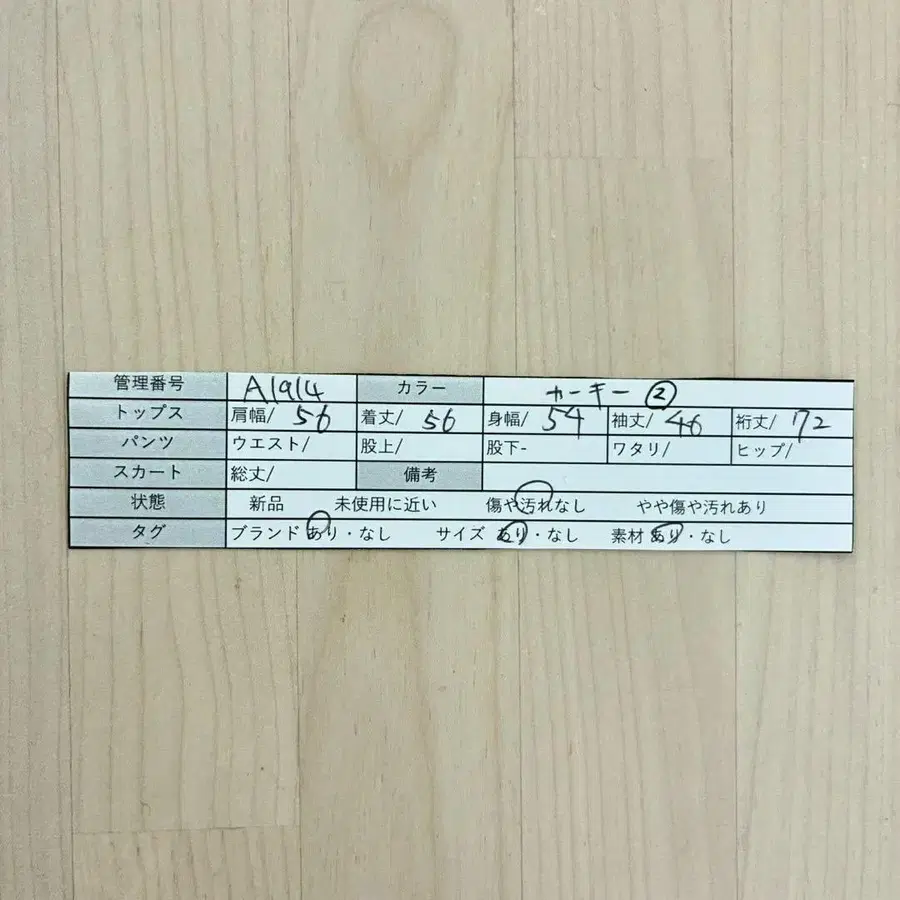 管理番号 A1914 カラー カーキー ②
トップス 肩幅/ 56 着丈/ 56 身幅/ 54 袖丈/ 46 裄丈/ 72
パンツ ウエスト/ 股上/ 股下- ワタリ/ ヒップ/
スカート 総丈/ 備考
状態 新品 未使用に近い 傷や汚れなし やや傷や汚れあり
タグ ブランド あり・なし サイズ あり・なし 素材 あり・なし